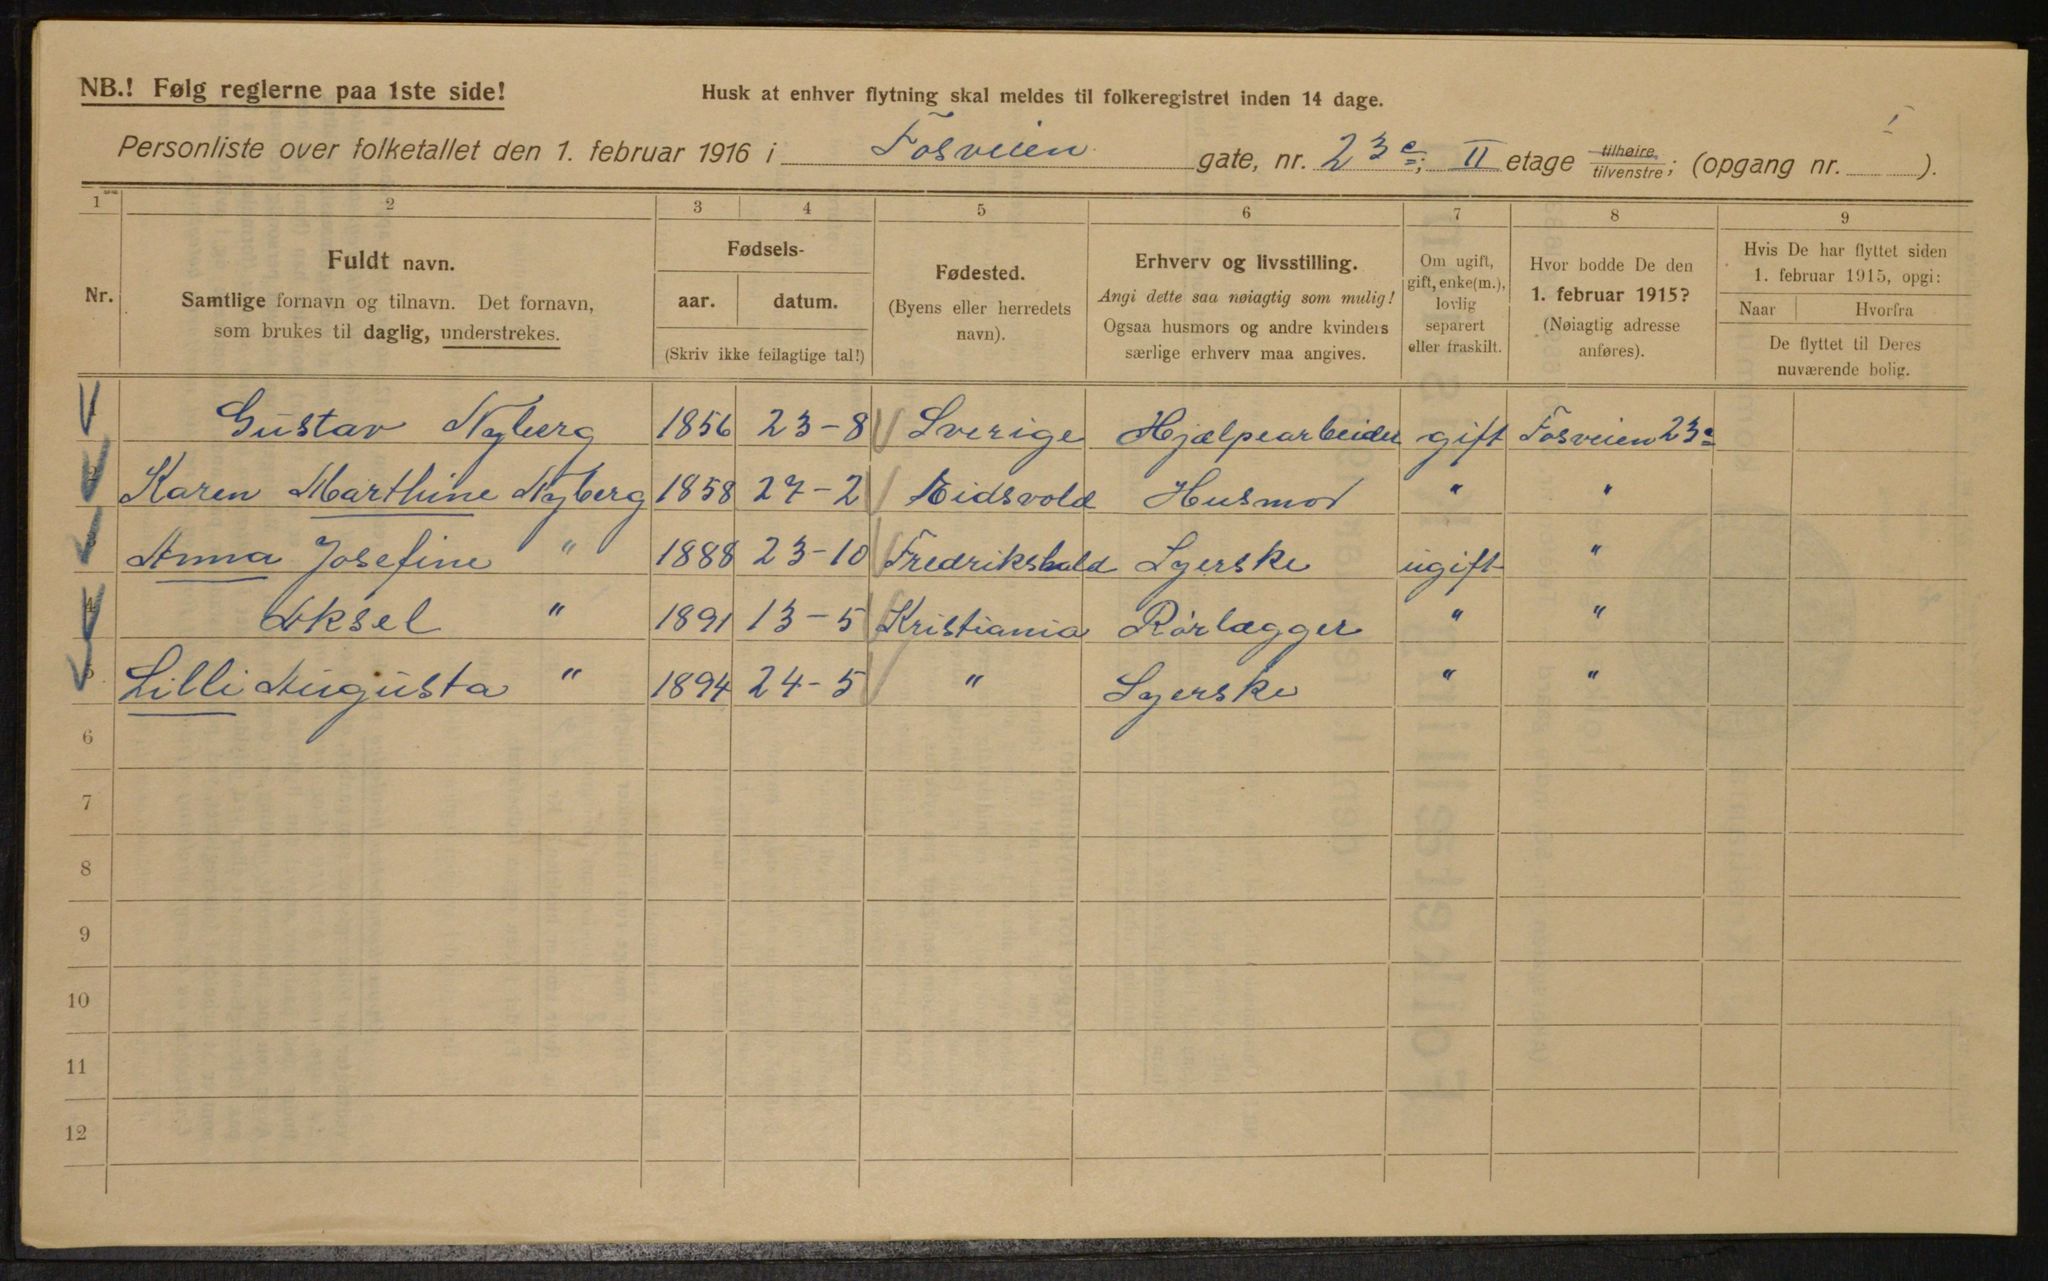 NB.! Følg reglerne paa 1ste side!
Husk at enhver flytning skal meldes til folkeregistret inden 14 dage.
Personliste over folketallet den 1. februar 1916 i Fosveien gate, nr. 23c; II etage tilhøire, tilvenstre; (opgang nr. ).
1 2 3 4 5 6 7 8 9
Nr.
Fuldt navn.
Samtlige fornavn og tilnavn. Det fornavn,
som brukes til daglig, understrekes.
Fødsels-
aar. datum.
(Skriv ikke feilagtige tal!)
Fødested.
(Byens eller herredets
navn).
Erhverv og livsstilling.
Angi dette saa nøiagtig som mulig!
Ogsaa husmors og andre kvinders
særlige erhverv maa angives.
Om ugift,
gift, enke(m.),
lovlig
separert
eller fraskilt.
Hvor bodde De den
1. februar 1915?
(Nøiagtig adresse
anføres).
Hvis De har flyttet siden
1. februar 1915, opgi:
Naar Hvorfra
De flyttet til Deres
nuværende bolig.
1 Gustav Nyberg 1856 23-8 Sverige Hjælpearbeider gift Fosveien 23c
2 Karen Marthine Nyberg 1858 27-2 Eidsvold Husmor " "
3 Anna Josefine " 1888 23-10 Fredrikshald Syerske ugift "
4 Aksel " 1891 13-5 Kristiania Rørlægger " "
5 Lilli Augusta " 1894 24-5 " Syerske " "
6
7
8
9
10
11
12